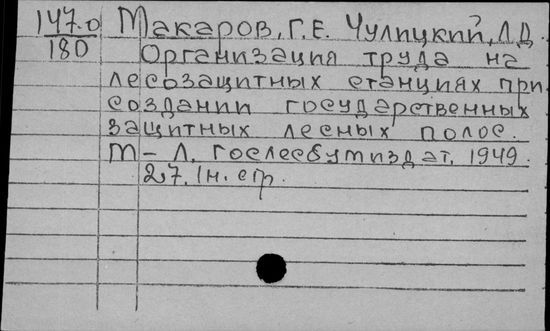 147.0 Макаров, Г.Е. Чулицкий, Л.Д.
180 Организация труда на
лесозащитных станциях при
создании государственных
защитных лесных полос.
М – Л. Гослесбумиздат, 1949.
27. 1н. стр.